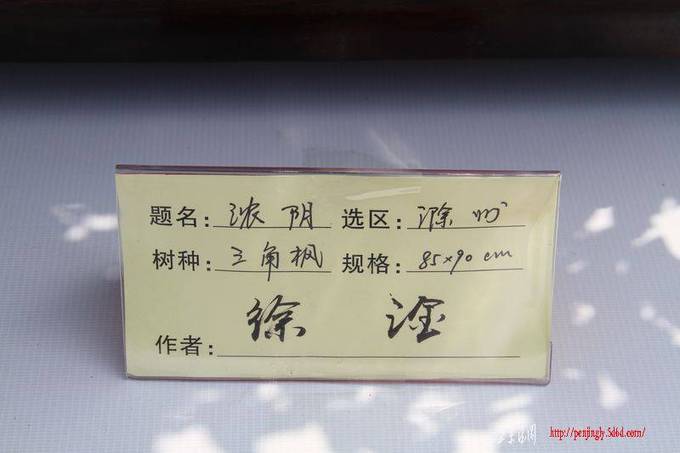 题名: 浓阴 选区: 滁州
树种: 三角枫 规格: 85×90cm
作者: 徐淦
http://penjingly.5d6d.com/